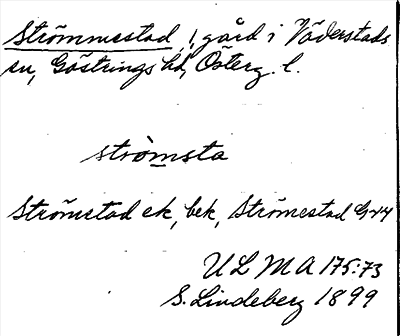 Strömmestad, 1, gård i Väderstads
sn, Göstrings hd, Österg. l.
stròmsta
Strömstad ek, bek, Strömestad G 44
ULMA 175:73
S. Lindeberg 1899